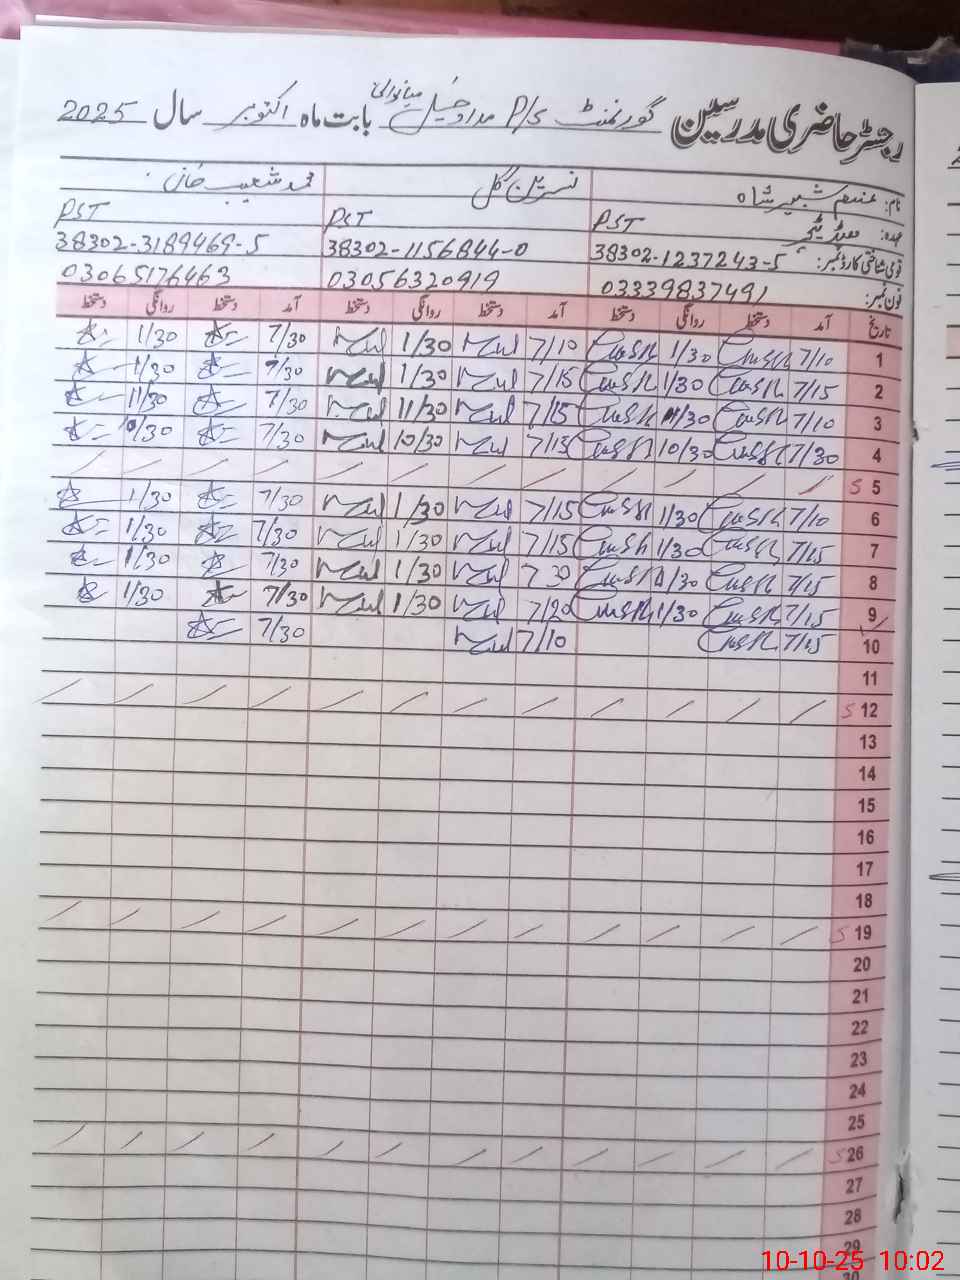 رجسٹر حاضری مدرسین گورنمنٹ P/S مدادخیل میانوالی بابت ماہ اکتوبر سال 2025
نام: شبیر شاہ نسرین گل محمد شعیب خان
عہدہ: PST PST PST
قومی شناختی کارڈ نمبر: 38302-1237243-5 38302-1156844-0 38302-3189469-5
فون نمبر: 03339837491 03056320919 03065176463
تاریخ آمد دستخط روانگی دستخط آمد دستخط روانگی دستخط آمد دستخط روانگی دستخط
1 7/10 1/30 7/10 1/30 7/30 1/30
2 7/15 1/30 7/15 1/30 7/30 1/30
3 7/10 11/30 7/15 11/30 7/30 11/30
4 7/30 10/30 7/15 10/30 7/30 10/30
5 S
6 7/10 1/30 7/15 1/30 7/30 1/30
7 7/15 1/30 7/15 1/30 7/30 1/30
8 7/15 1/30 7 30 1/30 7/30 1/30
9 7/15 1/30 7/20 1/30 7/30 1/30
10 7/15 7/10 7/30
11
12 S
13
14
15
16
17
18
19 S
20
21
22
23
24
25
26 S
27
28
29
30
10-10-25 10:02